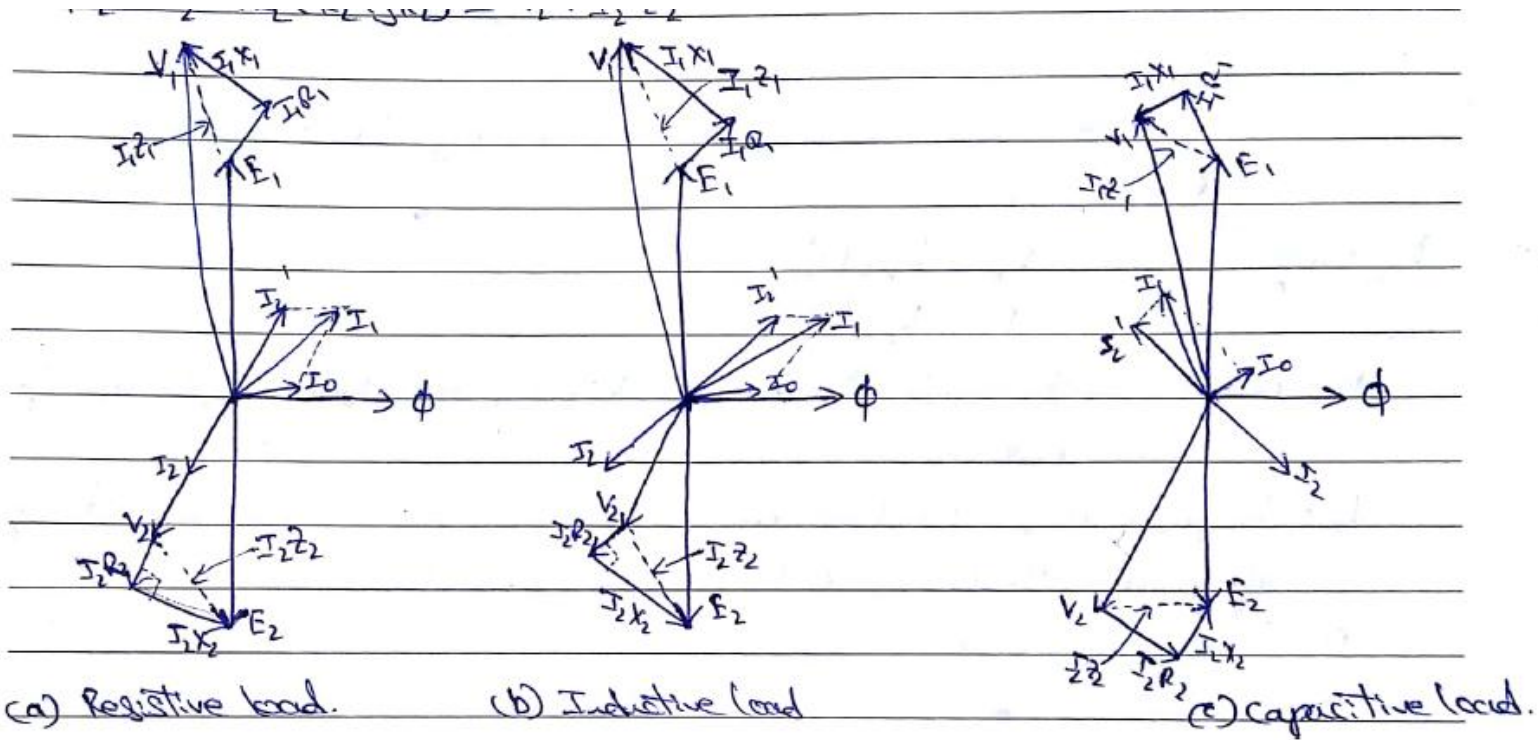 V₁ I₁X₁
I₁R₁
I₁Z₁
E₁
I₂'
I₁
I₀
ϕ
I₂
V₂
I₂Z₂
I₂R₂
E₂
I₂X₂
(a) Resistive load.
V₁ I₁X₁
I₁Z₁
I₁R₁
E₁
I₂'
I₁
I₀
ϕ
I₂
V₂
I₂R₂
I₂Z₂
I₂X₂
E₂
(b) Inductive load
I₁X₁
V₁
E₁
I₁Z₁
I₁
I₂'
I₀
ϕ
I₂
V₂
E₂
I₂X₂
I₂Z₂
I₂R₂
(c) Capacitive load.